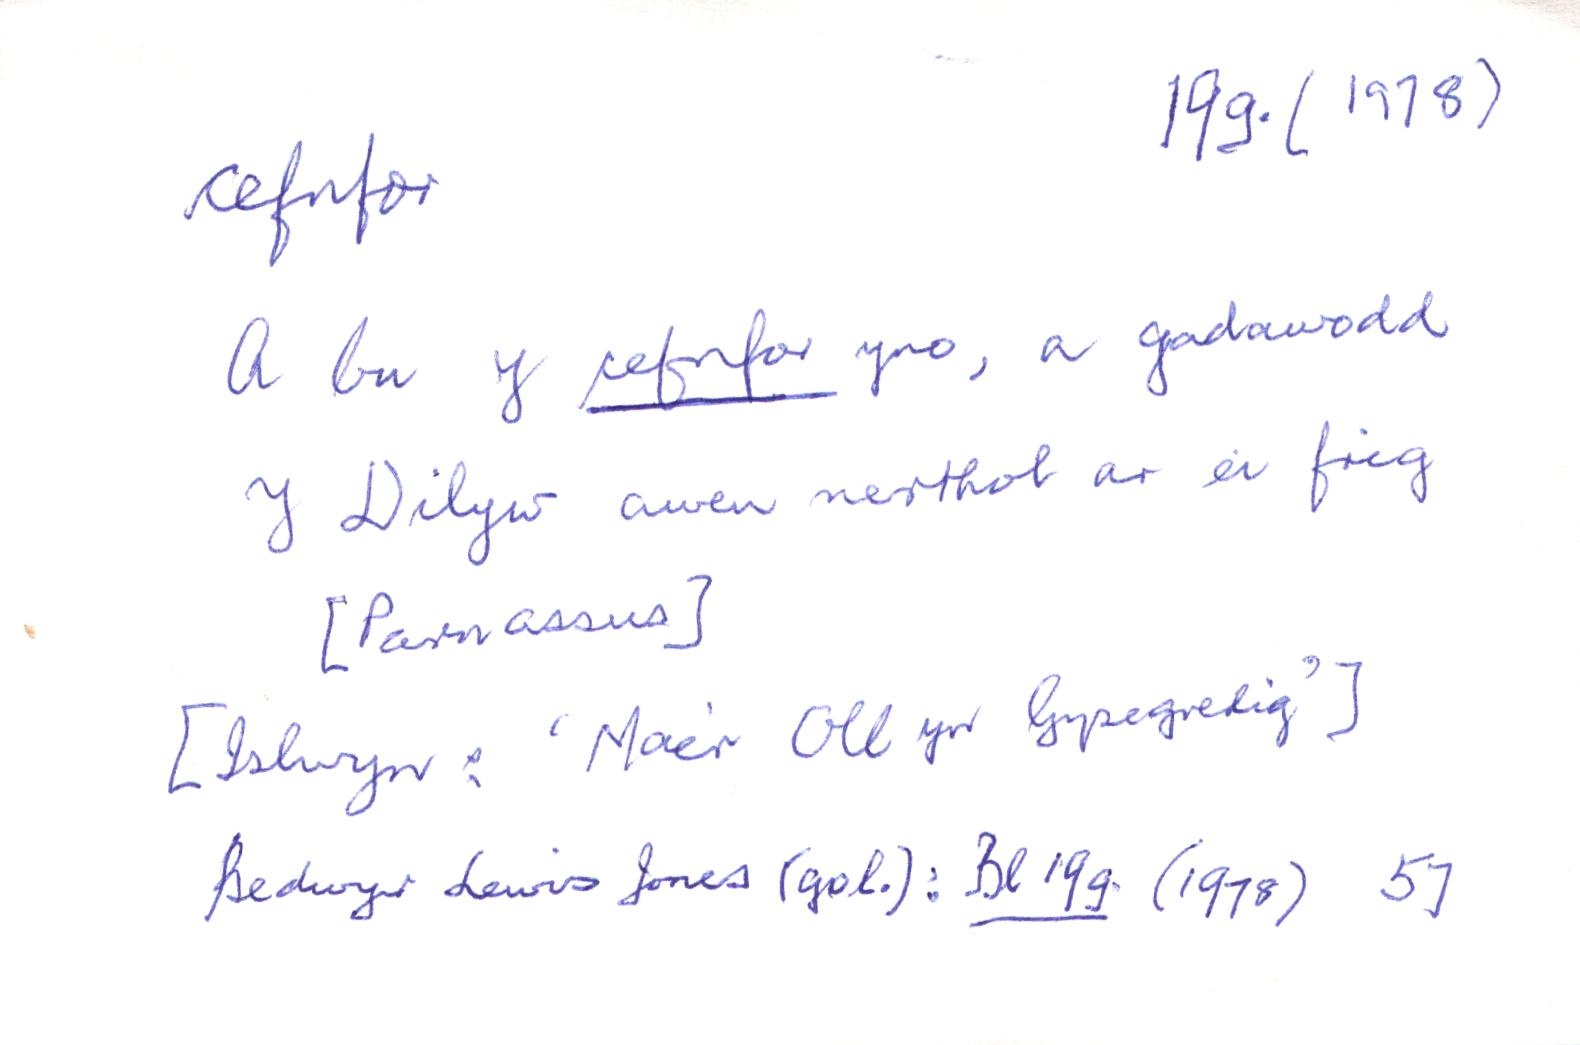 19g. (1978)
cefnfor
A bu y cefnfor yno, a gadawodd
y Dilyw awen nerthol ar ei frig
[Parnassus]
[Islwyn: 'Mae'r Oll yn Gysegredig']
Bedwyr Lewis Jones (gol.): Bl 19g. (1978) 57